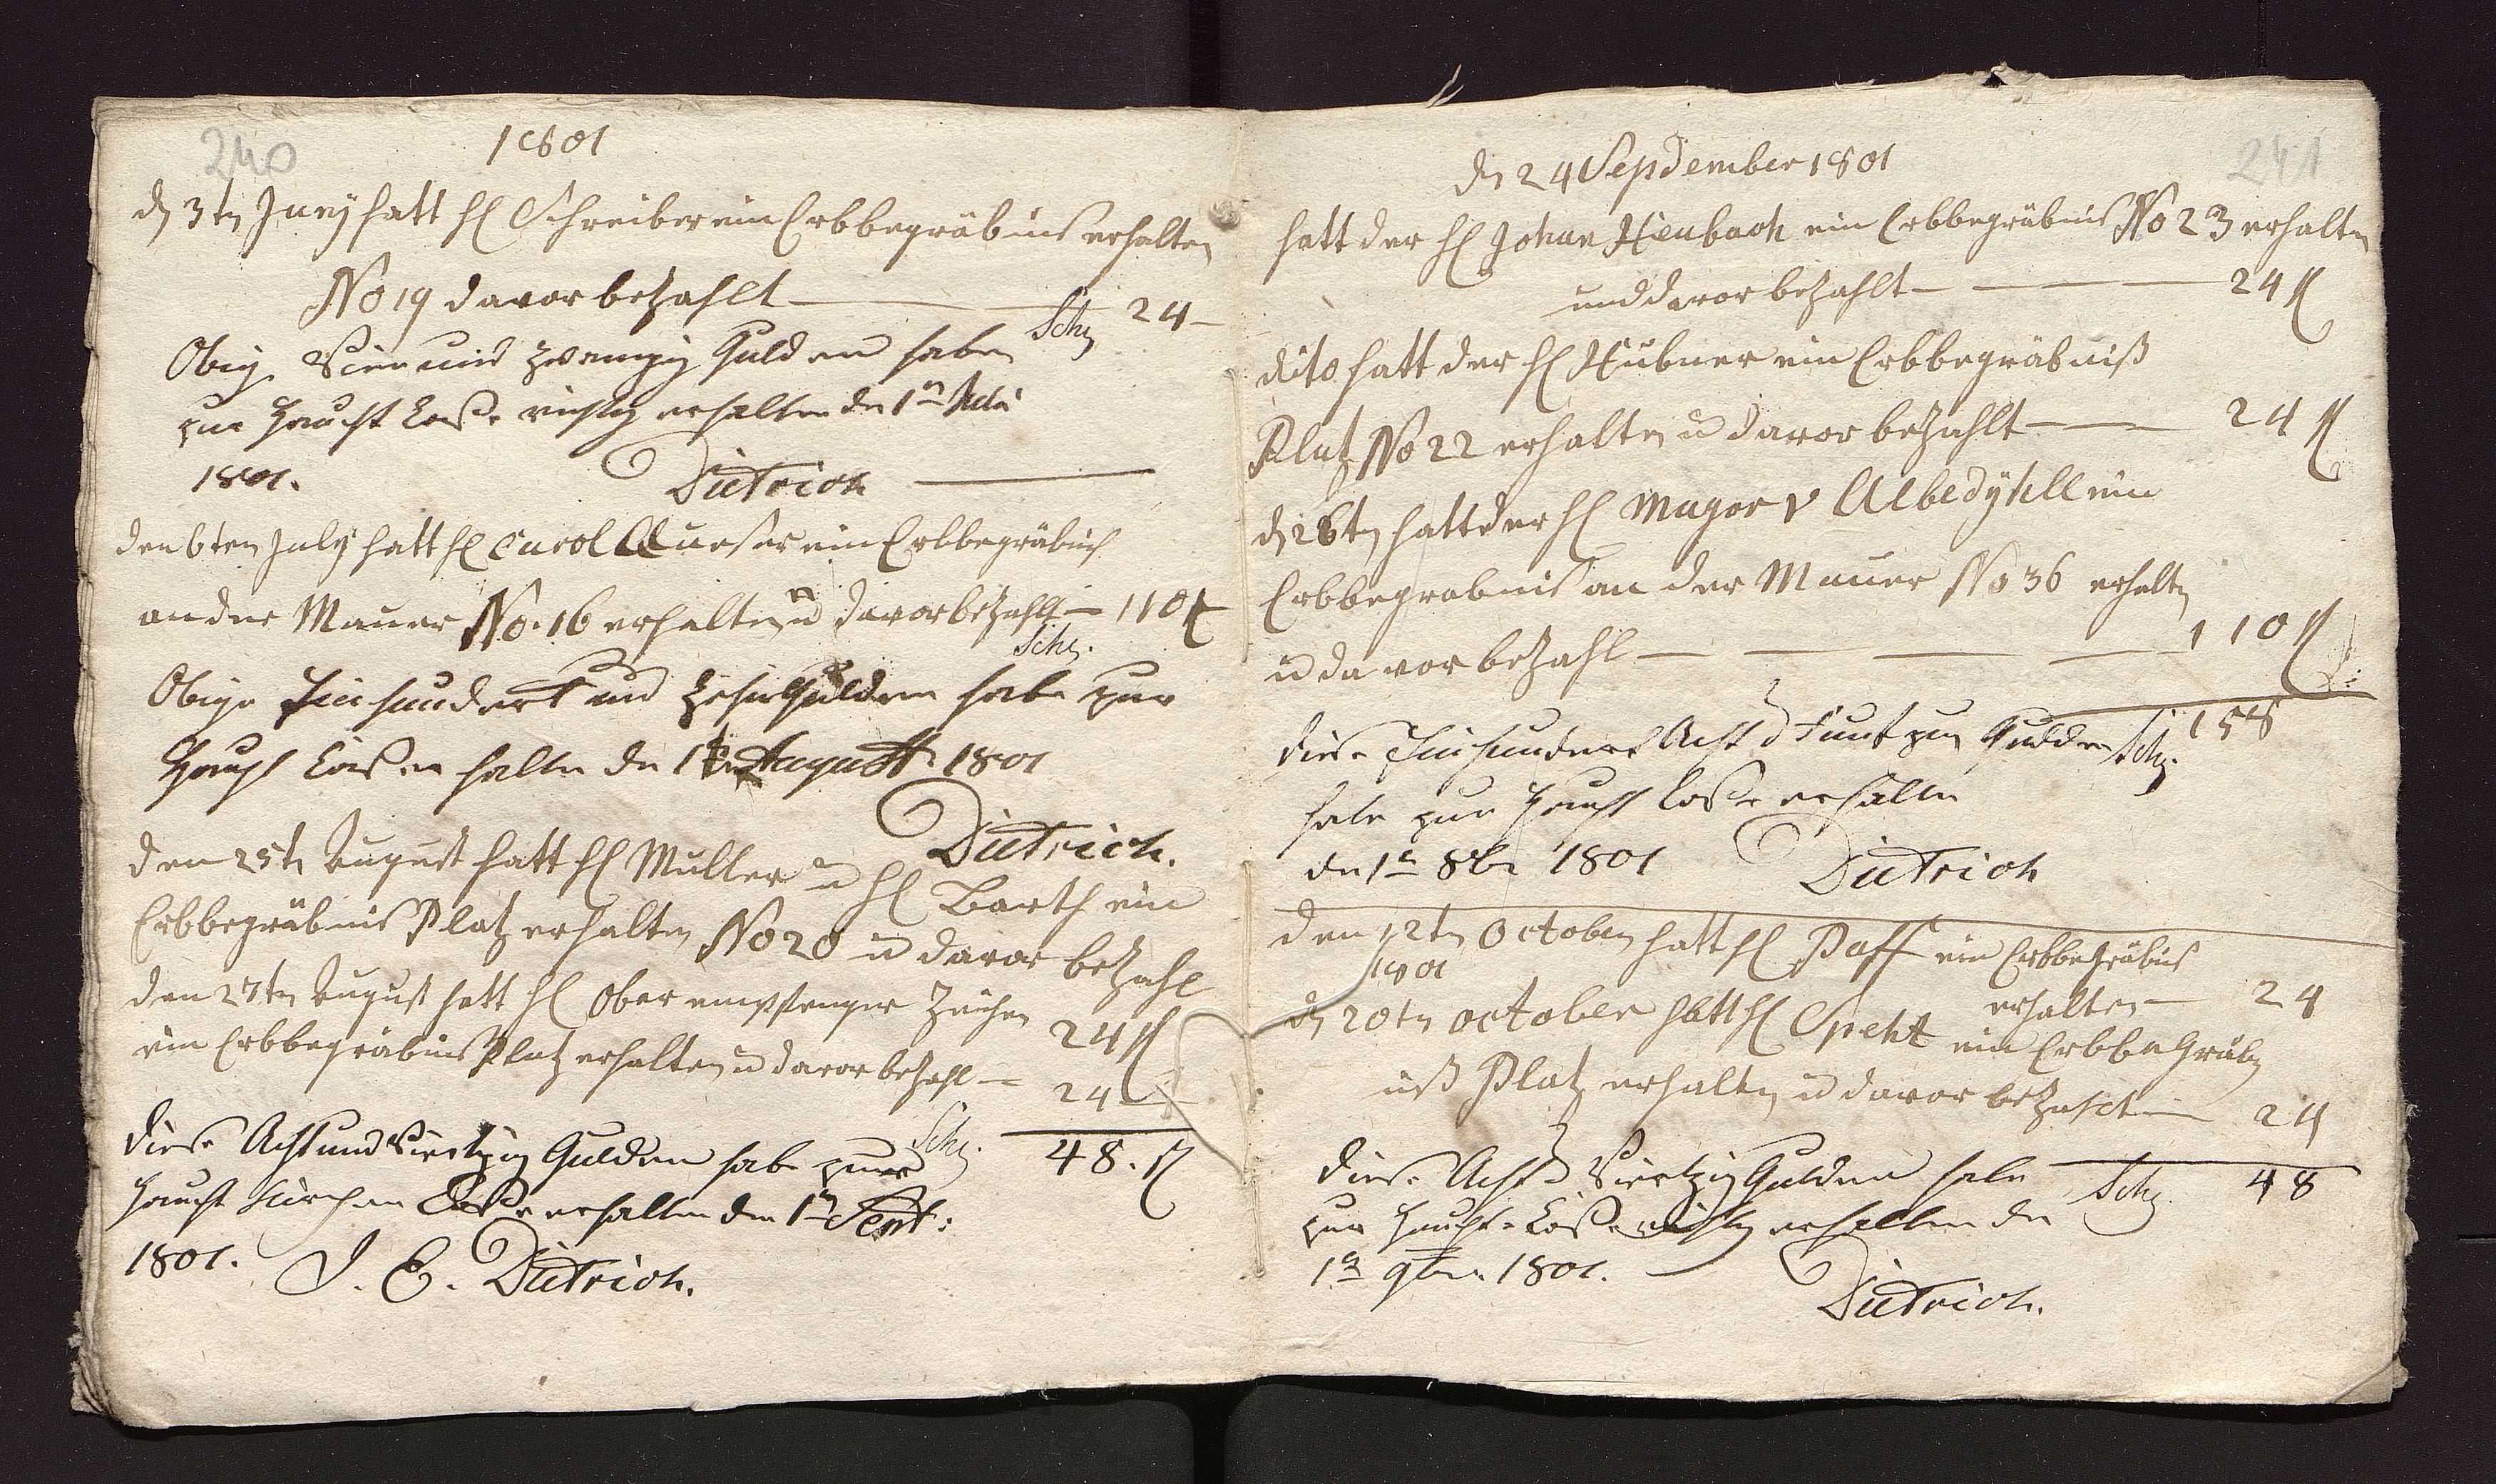 240
1801
d 3tn Juny hatt H Schreiber ein Erbbegräbnis erhalten
No 19 davor bezahlt — 24 –
Sch
Obige Vier und zwanzig Gulden habe
zur Haupt Casse richtig erhalten den 1n
1801. Dietrich
den 6ten July hatt H Carol ein Erbbegräbnis
an der Mauer No. 16 erhalten u davor bezahlt — 110 f
Sch.
Obige Einhundert und Zehn Gulden habe zur
Haupt Casse erhalten den 1tn August 1801
Dietrich.
den 25tn August hatt H Muller u H Barth ein
Erbbegräbnis Platz erhalten No 20 u davor bezahl
24 f
den 27tn August hatt H Ober
ein Erbbegräbnis Platz erhalten u davor bezahl — 24
Sch.
Diese Acht und Viertzig Gulden habe zur 48. f
Haupt Kirchen Casse erhalten den 1n Sept:
1801. J. E. Dietrich.
241
dn 24 Sepdember 1801
hatt der H Johan Hienbach ein Erbbegräbnis No 23 erhalten
und davor bezahlt — — — — 24 f
dito hatt der H Hübner ein Erbbegräbniß
Platz No 22 erhalten u davor bezahlt — — 24 f
d 26tn hatt der H Magor v Albedÿhll ein
Erbbegrabnis an der Mauer No 36 erhalten
u davor bezahl — — — — 110 f
158
Diese Einhundert Acht u Funfzig Gulden Sch.
habe zur Haupt Casse erhalten
den 1n 8br 1801 Dietrich
den 12tn October hatt H Paff ein Erbbegräbnis
1801 erhalten — 24
d 20tn october hatt H Speht ein Erbbegräbn
iß Platz erhalten u davor bezahlt — 24
Diese Acht u Viertzig Gulden habe Sch. 48
zur Haupt-Casse richtig erhalten den
1n 9br. 1801. —
Dietrich.